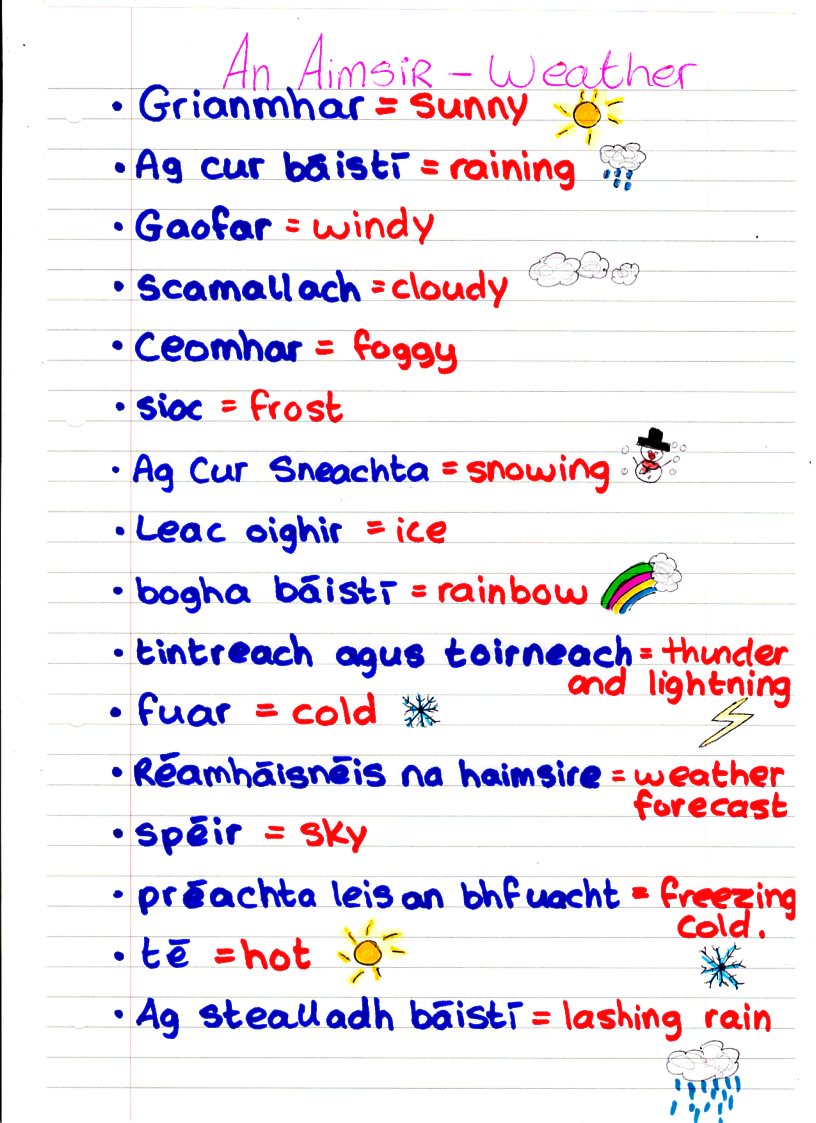 An Aimsir - Weather
• Grianmhar = Sunny
• Ag cur báistí = raining
• Gaofar = windy
• Scamallach = cloudy
• Ceomhar = foggy
• sioc = frost
• Ag Cur Sneachta = snowing
• Leac oighir = ice
• bogha báistí = rainbow
• tintreach agus toirneach = thunder
and lightning
• fuar = cold
• Réamháisnéis na haimsire = weather
forecast
• spéir = sky
• préachta leis an bhfuacht = freezing
cold.
• té = hot
• Ag stealladh báistí = lashing rain